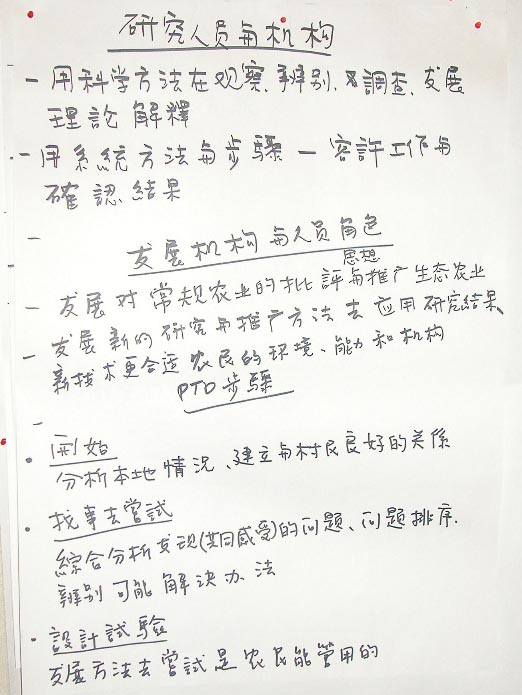 研究人员与机构
- 用科学方法在观察.辨别.及調查.发展
理論解釋
- 用系統方法与步驟 - 容許工作与
確認結果
-
发展机构与人员角色
思想
- 发展对常规农业的批評与推广生态农业
- 发展新的研究与推广方法去应用研究结果、
新技术更合适农民的环境、能力和机构
PTD步驟
• 開始
分析本地情況、建立与村民良好的关係
• 找事去嘗試
綜合分析发现(共同感受)的问题、问题排序.
辨别可能解決办法
• 設計試驗
发展方法去嘗試是农民能管用的